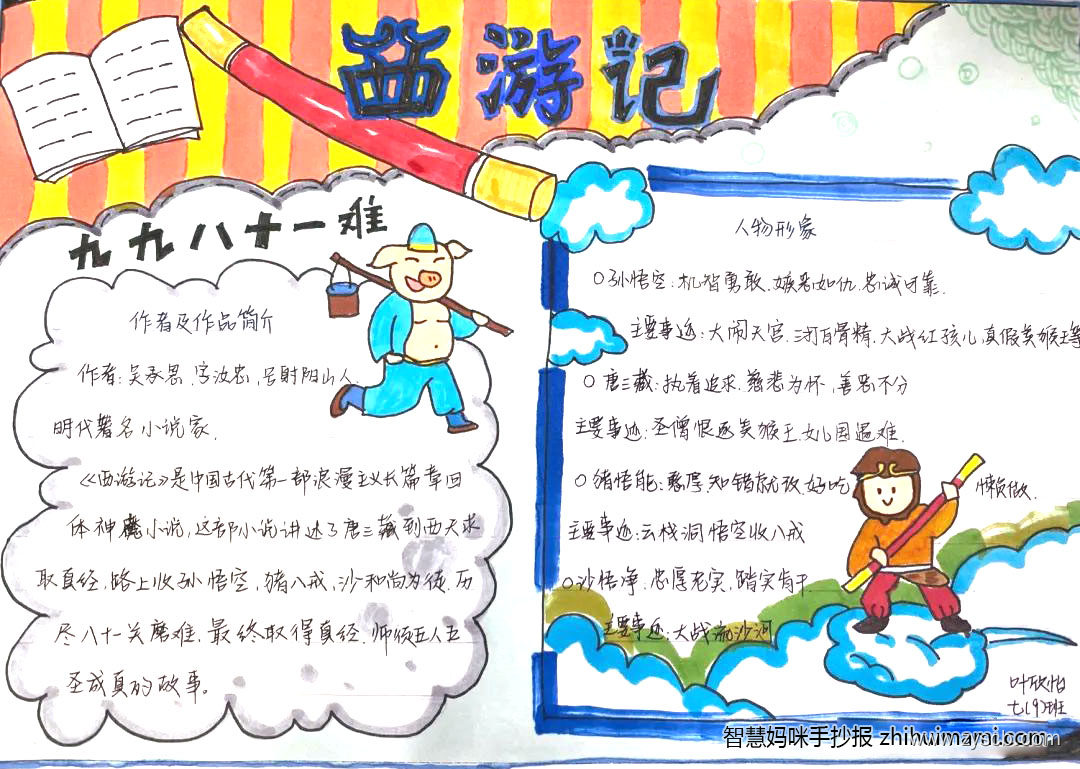 西游记
九九八十一难
作者及作品简介
作者:吴承恩,字汝忠,号射阳山人.
明代著名小说家.
《西游记》是中国古代第一部浪漫主义长篇章回
体神魔小说,这部小说讲述了唐三藏到西天求
取真经,路上收孙悟空,猪八戒,沙和尚为徒.历
尽八十一关磨难.最终取得真经.师徒五人五
圣成真的故事。
人物形象
○孙悟空:机智勇敢.嫉恶如仇.忠诚可靠.
主要事迹:大闹天宫.三打白骨精.大战红孩儿.真假美猴王等
○唐三藏:执着追求.慈悲为怀,善恶不分
主要事迹:圣僧恨逐美猴王.女儿国遇难.
○猪悟能:憨厚.知错就改.好吃懒做.
主要事迹:云栈洞悟空收八戒
○沙悟净.忠厚老实.踏实肯干.
主要事迹:大战流沙河
叶欣怡
七(9)班
智慧妈咪手抄报 zhihuimayai.com